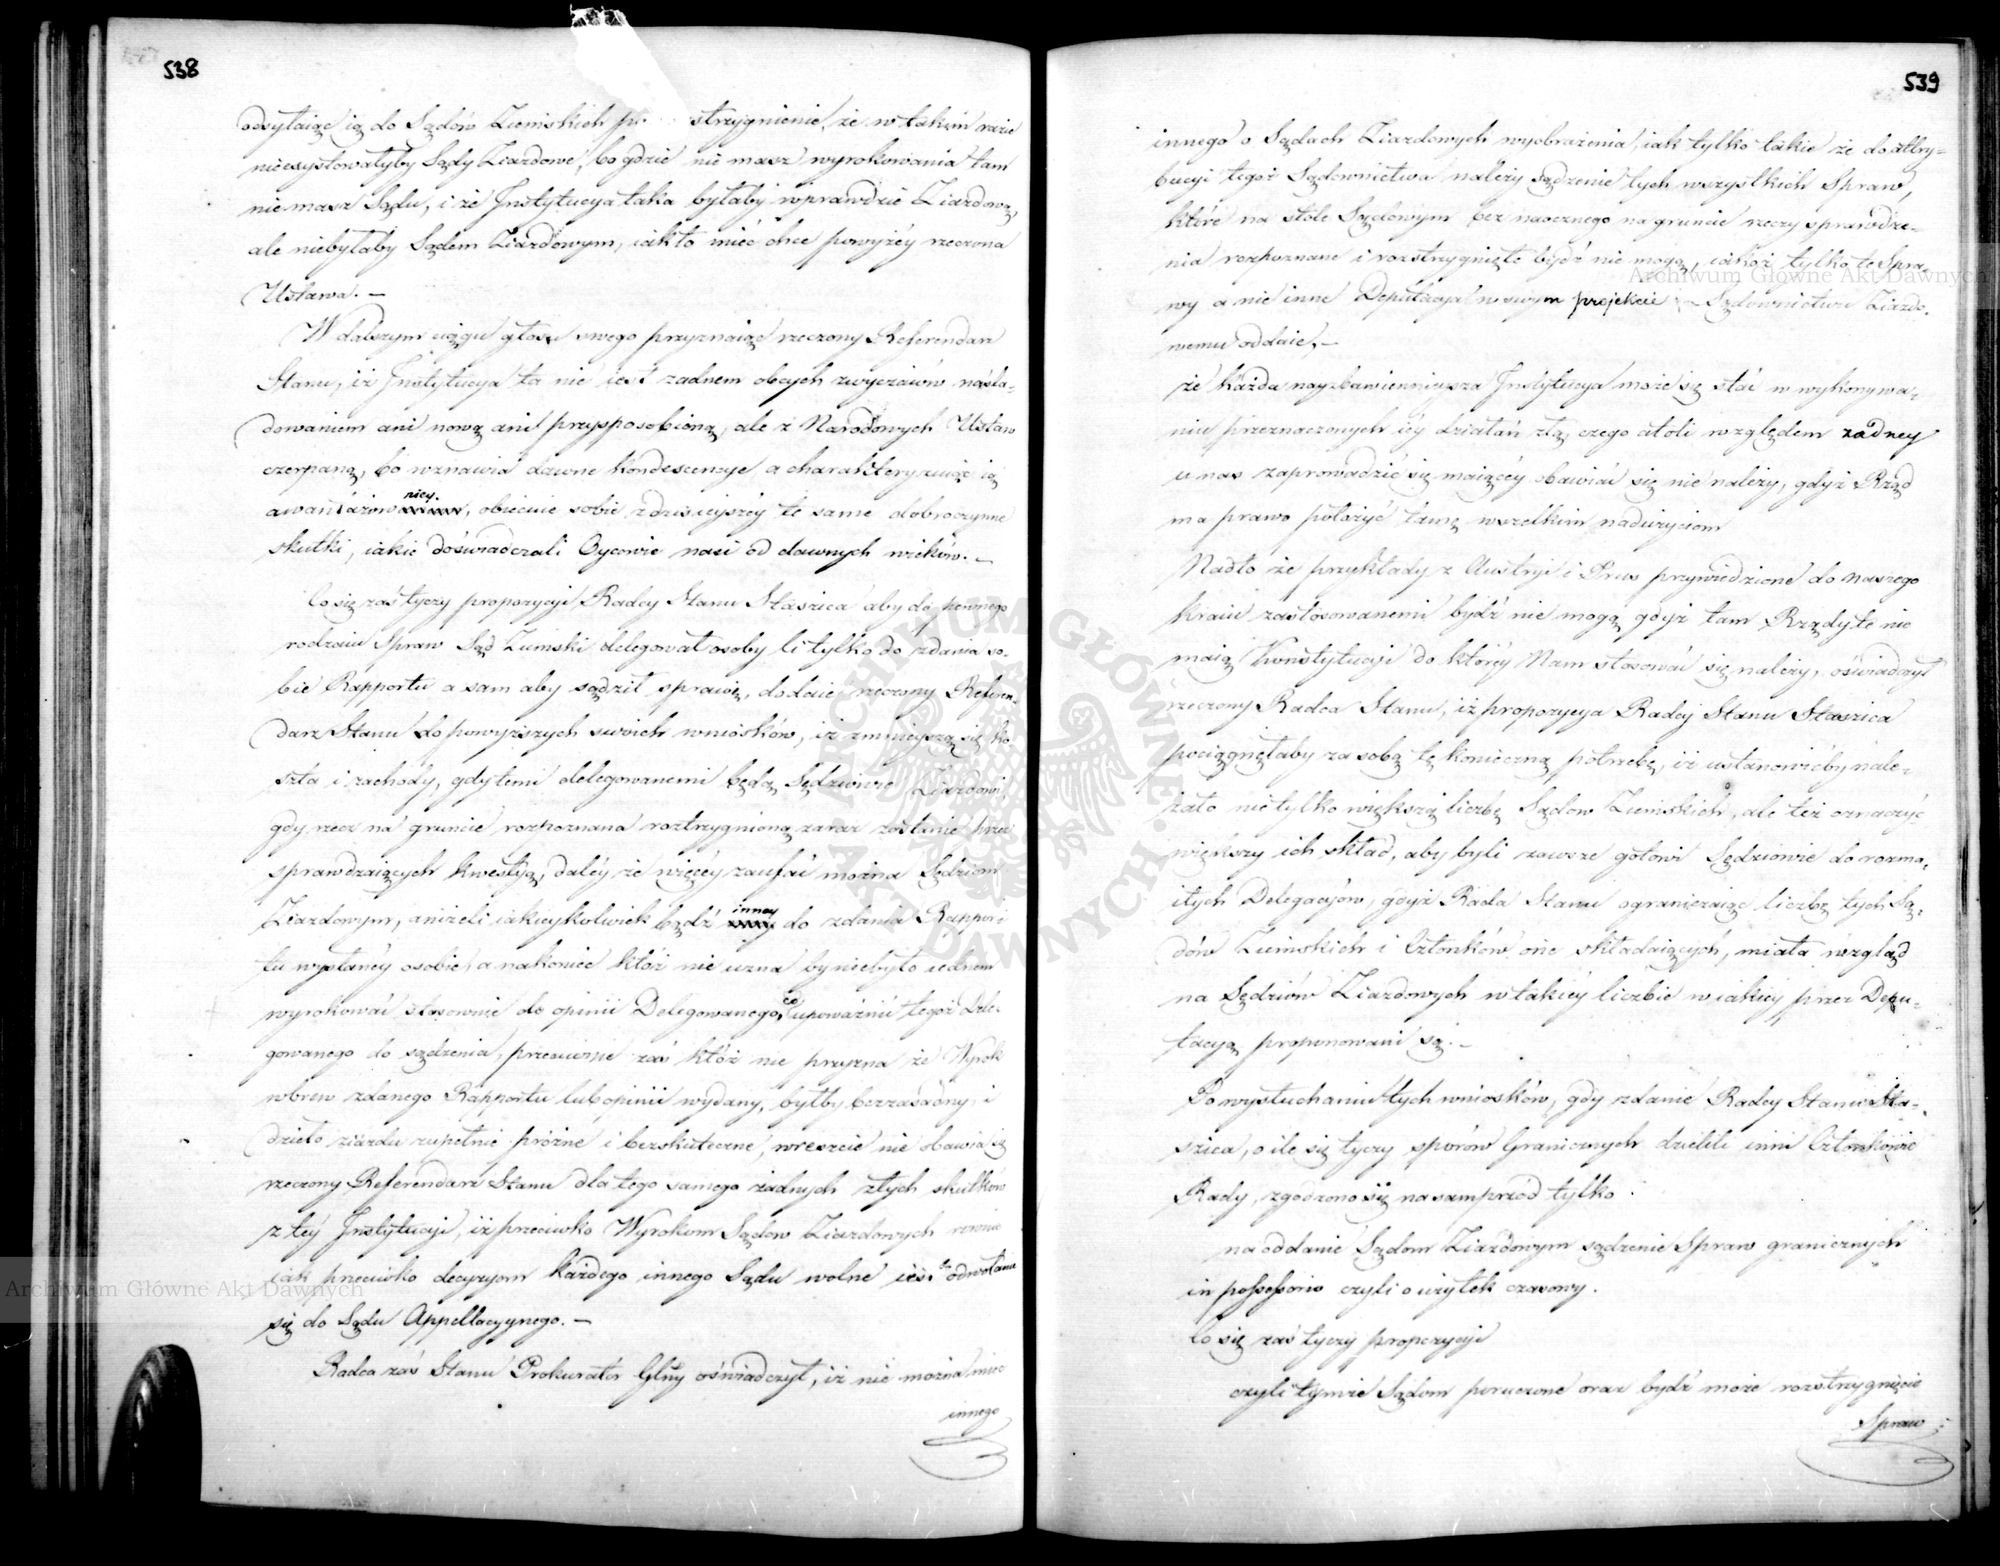 538
odsyłaiąc ią do Sądów Ziemskich strzygnienie, że w takim razie
nieexystowałyby Sądy Ziazdowe, bo gdzie nie masz wyrokowania tam
niemasz Sądu, i że Instytucya taka byłaby wprawdzie Ziazdową,
ale niebyłaby Sądem Ziazdowym, iak to mieć chce powyżéy rzeczona
Ustawa. –
W dalszym ciągu głosu swego przyznaiąc rzeczony Referendarz
Stanu, iż Instytucya ta nie iest żadnem obcych zwyczaiów naśla-
dowaniem ani nową ani przysposobioną, ale z Narodowych Ustaw
czerpaną, bo wznawia dawne Kondescensye a charakteryzuiąc ią
niey, obiecuie sobie z dzisieyszéy te same dobroczynne
skutki, iakie doświadczali Oycowie nasi od dawnych wieków. –
Co się zaś tyczy propozycyi Radcy Stanu Staszica aby do pewnego
rodzaiu Spraw Sąd Ziemski delegował osoby li tylko do zdania so-
bie Rapportu a sam aby sądził sprawę, dodaie rzeczony Referen-
darz Stanu do powyższych swoich wniosków, iż zmnieyszą się ko-
szta i zachody, gdy temi delegowanemi będą Sędziowie Ziazdowi,
gdy rzecz na gruncie rozpoznana roztrzygnioną zaraz zostanie przez
sprawdzaiących kwestyą, daléy że więcéy zaufać można Sędziom
Ziazdowym, aniżeli iakieykolwiek bądź inney do zdania Rappor-
tu wysłanéy osobie, a nakoniec któż nie uzna by niebyło iednem
wyrokować stosownie do opinii Delegowanego, co upoważnić tegoż Dele-
gowanego do sądzenia, przeciwnie zaś któż nie przyzna że Wyrok
wbrew zdanego Rapportu lub opinii wydany, byłby bezzasadny, i
dzieło ziazdu zupełnie próżne i bezskuteczne, wreszcie nie obawia się
rzeczony Referendarz Stanu dla tego samego żadnych złych skutków
z téy Instytucyi, iż przeciwko Wyrokom Sądów Ziazdowych równie
iak przeciwko decyzyom każdego innego Sądu wolne iest odwołanie
się do Sądu Appellacyynego. –
Radca zaś Stanu Prokurator Glny oświadczył, iż nie można mieć
innego
539
innego o Sądach Ziazdowych wyobrażenia, iak tylko takie że do attry-
bucyi tegoż Sądownictwa należy sądzenie tych wszystkich Spraw,
które na stole Sądowym bez naocznego na gruncie rzeczy sprawdze-
nia rozpoznane i rozstrzygnięte bydź nie mogą, iakoż tylko te Spra-
wy a nie inne Deputacya w swym projekcie Sądownictwu Ziazdo-
wemu oddaie. –
że każda nayzbawiennieysza Instytucya może się stać w wykonywa-
niu przeznaczonych iéy działań złą, czego atoli względem żadney
u nas zaprowadzić się maiącéy obawiać się nie należy, gdyż Rząd
ma prawo położyć tamę wszelkim nadużyciom
Nadto że przykłady z Austryi i Prus przywiedzione do naszego
kraiu zastosowanemi bydź nie mogą, gdyż tam Rządy te nie
maią Konstytucyi do któréy Nam stosować się należy, oświadczył
rzeczony Radca Stanu, iż propozycya Radcy Stanu Staszica
pociągnęłaby za sobą tę konieczną potrzebę, iż ustanowićby nale-
żało nie tylko większą liczbę Sądów Ziemskich, ale też oznaczyć
większy ich skład, aby byli zawsze gotowi Sędziowie do rozma-
itych Delegacyów, gdyż Rada Stanu ograniczaiąc liczbę tych Są-
dów Ziemskich i Członków one składaiących, miała wzgląd
na Sędziów Ziazdowych w takiéy liczbie w iakiéy przez Depu-
tacyą proponowani są. –
Po wysłuchaniu tych wniosków, gdy zdanie Radcy Stanu Sta-
szica, o ile się tyczy sporów Granicznych dzielili inni Członkowie
Rady, zgodzono się na samprzód tylko:
na oddanie Sądom Ziazdowym sądzenie Spraw granicznych
in possessorio czyli o użytek czasowy.
Co się zaś tyczy propozycyi
czyli tymże Sądom poruczone oraz bydź może rozstrzygnięcie
Spraw
Archiwum Główne Akt Dawnych
Archiwum Główne Akt Dawnych
ARCHIWUM GŁÓWNE AKT DAWNYCH